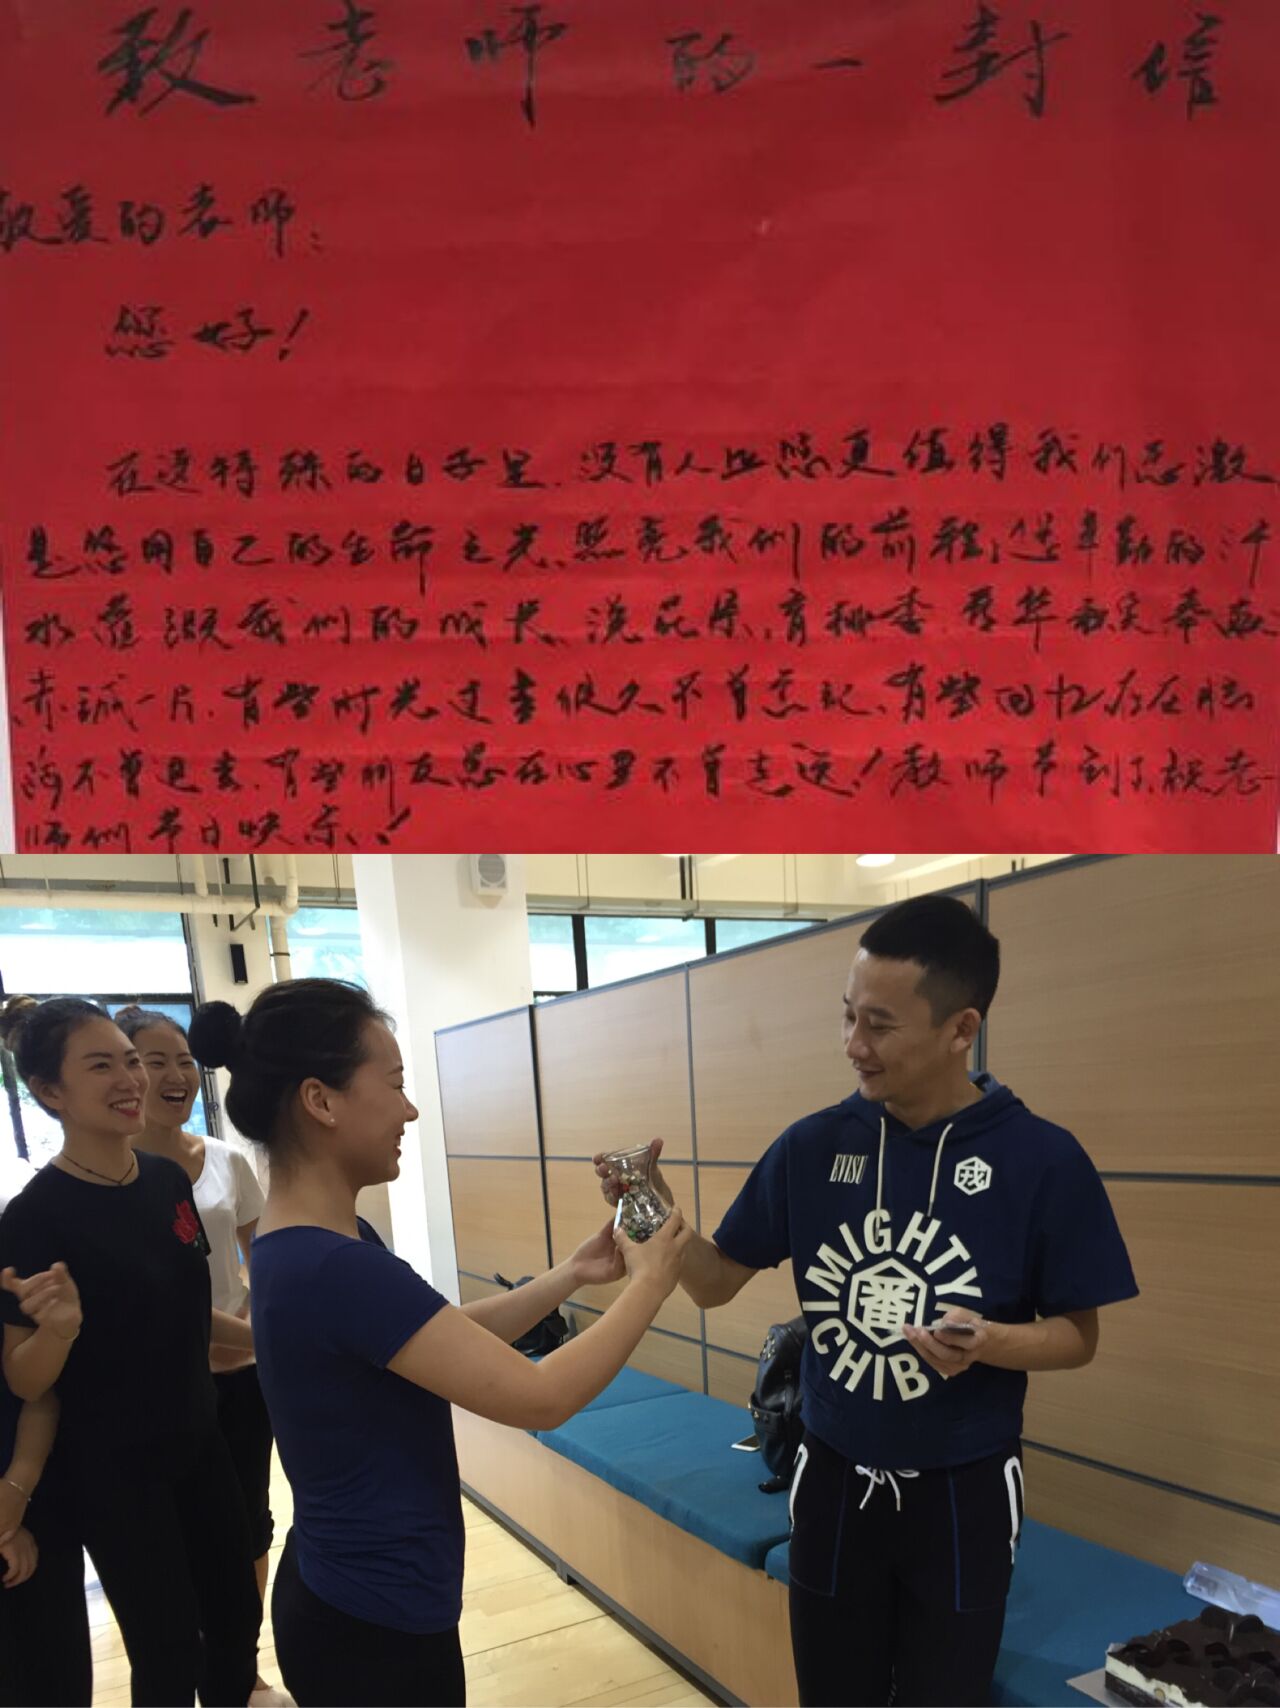 致老师的一封信
敬爱的老师：
您好！
在这特殊的日子里、没有人比您更值得我们感激
是您用自己的生命之光、照亮我们的前程，您辛勤的汗
水灌溉我们的成长、浇花朵，育桃李，春华秋实奉献
赤诚一片，有些时光过去很久不曾忘记、有些回忆存在脑
海不曾退去、有些朋友总在心里不曾走远！教师节到了，祝老
师们节日快乐！
EVISU
戎
MIGHTY
番
ICHIB